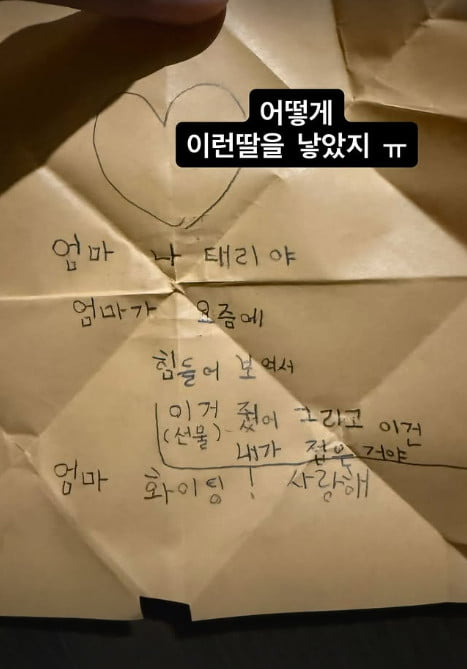 어떻게
이런딸을 낳았지 ㅠ
엄마 나 태리야
엄마가 요즘에
힘들어 보여서
이거 줬어 그리고 이건
(선물) 내가 접은 거야
엄마 화이팅! 사랑해